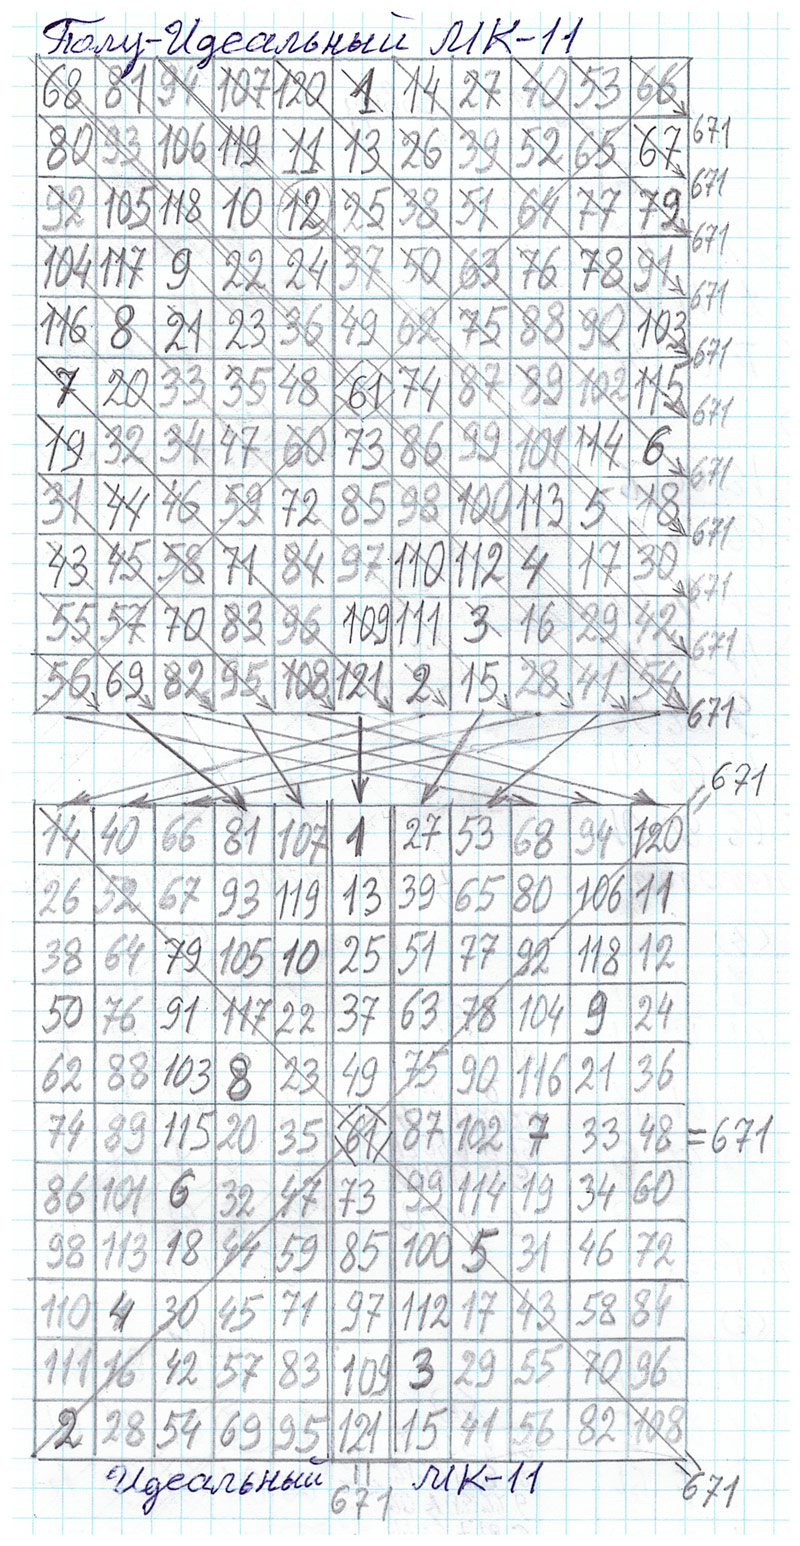 Полу-Идеальный МК-11
68 81 94 107 120 1 14 27 40 53 66
671
80 93 106 119 11 13 26 39 52 65 67
671
92 105 118 10 12 25 38 51 64 77 79
671
104 117 9 22 24 37 50 63 76 78 91
671
116 8 21 23 36 49 62 75 88 90 103
671
7 20 33 35 48 61 74 87 89 102 115
671
19 32 34 47 60 73 86 99 101 114 6
671
31 44 46 59 72 85 98 100 113 5 18
671
43 45 58 71 84 97 110 112 4 17 30
671
55 57 70 83 96 109 111 3 16 29 42
671
56 69 82 95 108 121 2 15 28 41 54
671
671
14 40 66 81 107 1 27 53 68 94 120
26 52 67 93 119 13 39 65 80 106 11
38 64 79 105 10 25 51 77 92 118 12
50 76 91 117 22 37 63 78 104 9 24
62 88 103 8 23 49 75 90 116 21 36
74 89 115 20 35 61 87 102 7 33 48 = 671
86 101 6 32 47 73 99 114 19 34 60
98 113 18 44 59 85 100 5 31 46 72
110 4 30 45 71 97 112 17 43 58 84
111 16 42 57 83 109 3 29 55 70 96
2 28 54 69 95 121 15 41 56 82 108
Идеальный = МК-11
671 671